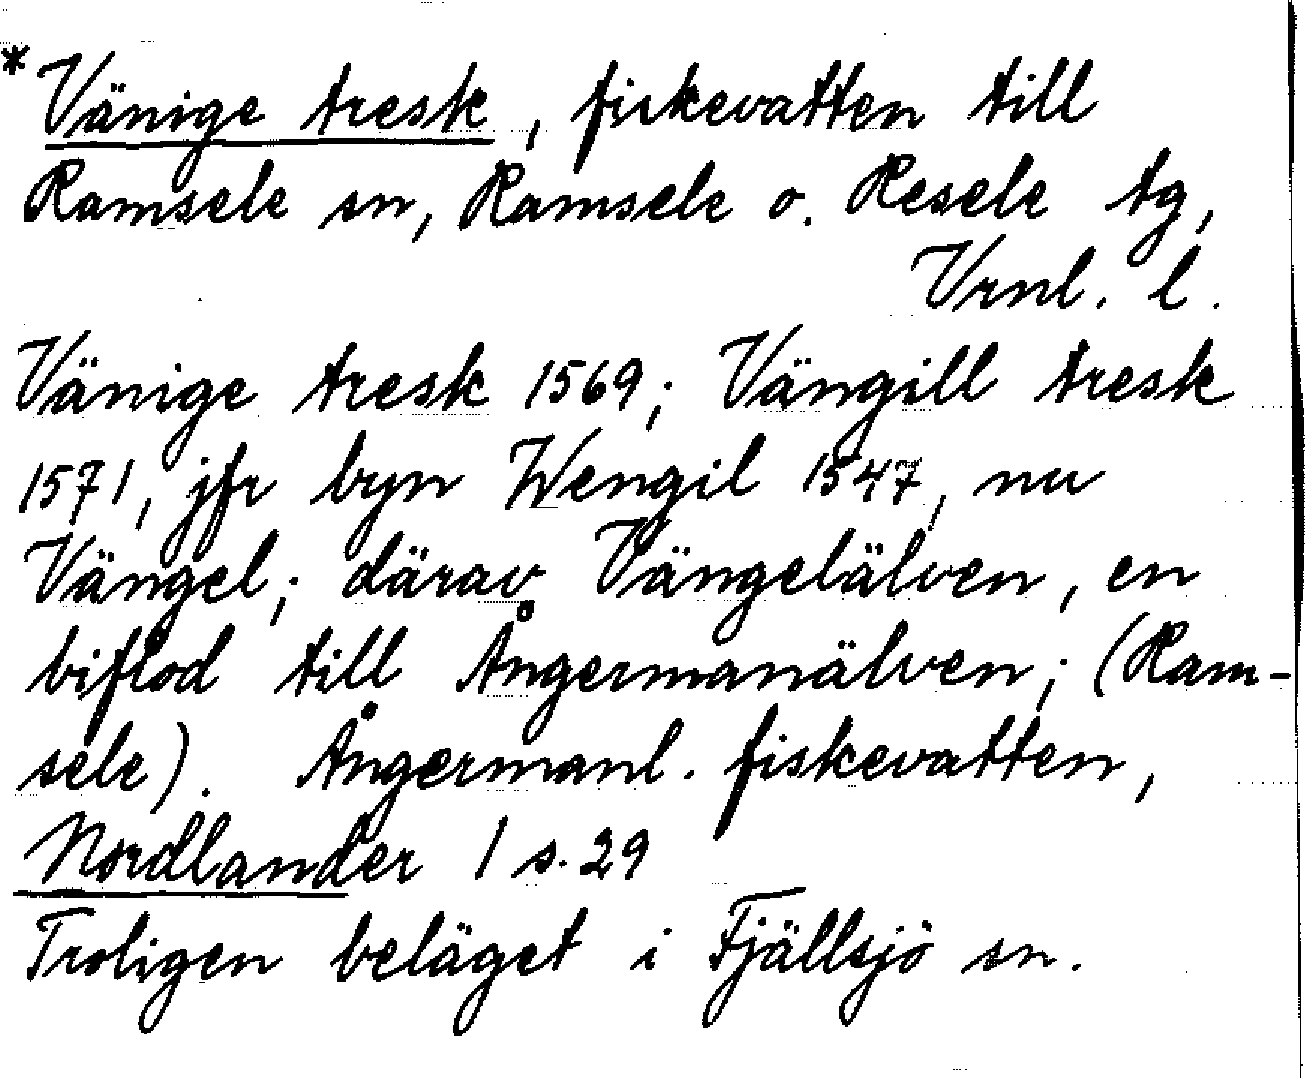 * Vänige tresk, fiskevatten till
Ramsele sn, Ramsele o. Resele tg,
Vrnl. l.
Vänige tresk 1569; Vängill tresk
1571, jfr byn Wengil 1547, nu
Vängel; därav Vängelälven, en
biflod till Ångermanälven; (Ram-
sele). Ångermanl. fiskevatten,
Nordlander 1 s. 29
Troligen beläget i Fjällsjö sn.